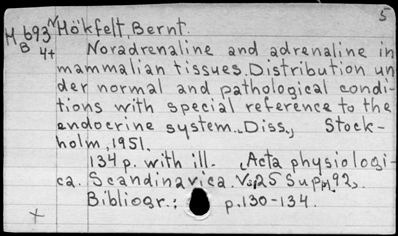 5
M 693 N Hökfelt, Bernt.
B 4+ Noradrenaline and adrenaline in
mammalian tissues. Distribution un
der normal and pathological condi-
tions with special reference to the
endocrine system. Diss., Stock-
holm, 1951.
134 p. with ill. (Acta physiologi-
ca. Scandinavica. V. 25 Suppl. 92).
Bibliogr.: p. 130-134.
+